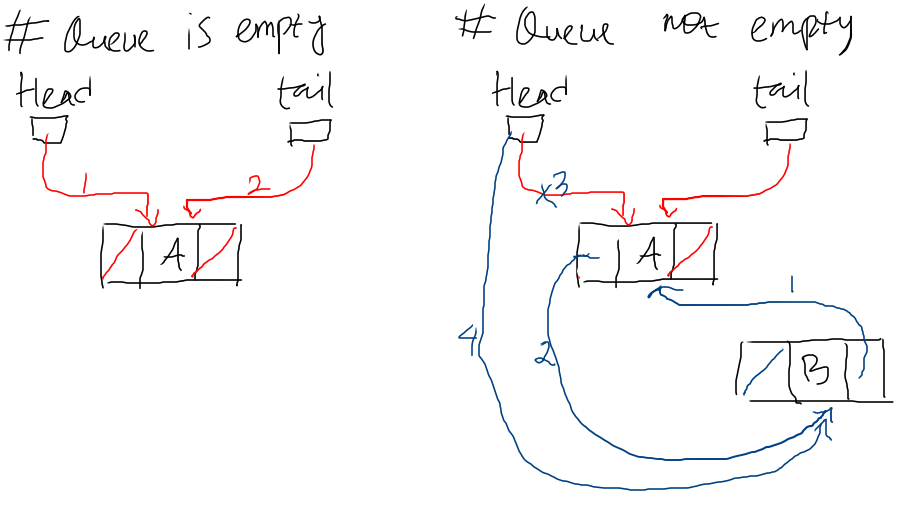 # Queue is empty
Head tail
1 2
A
# Queue not empty
Head tail
x3
A
1
4 2
B